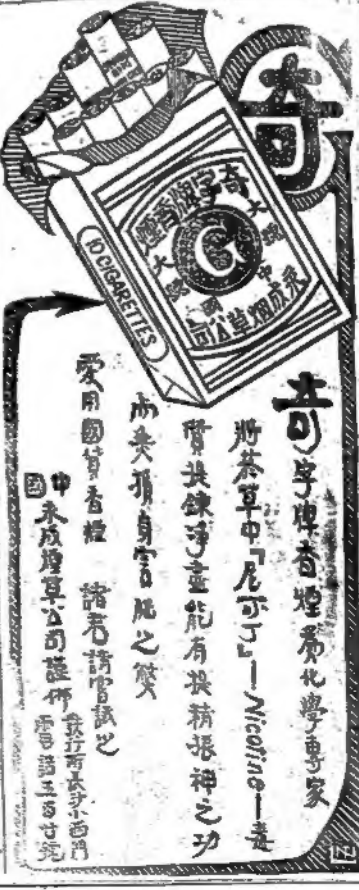 奇
奇字牌香煙
G
中國
永成烟草公司
10 CIGARETTES
奇字牌香煙為化學專家
將菸草中「尼可丁」—Nicotine—毒
質提鍊淨盡能有提精振神之功
而無損身害肢之弊
愛用國貨香煙 諸君請嘗試之
中國永成煙草公司謹佈
發行所長沙小西門
電話五百廿號